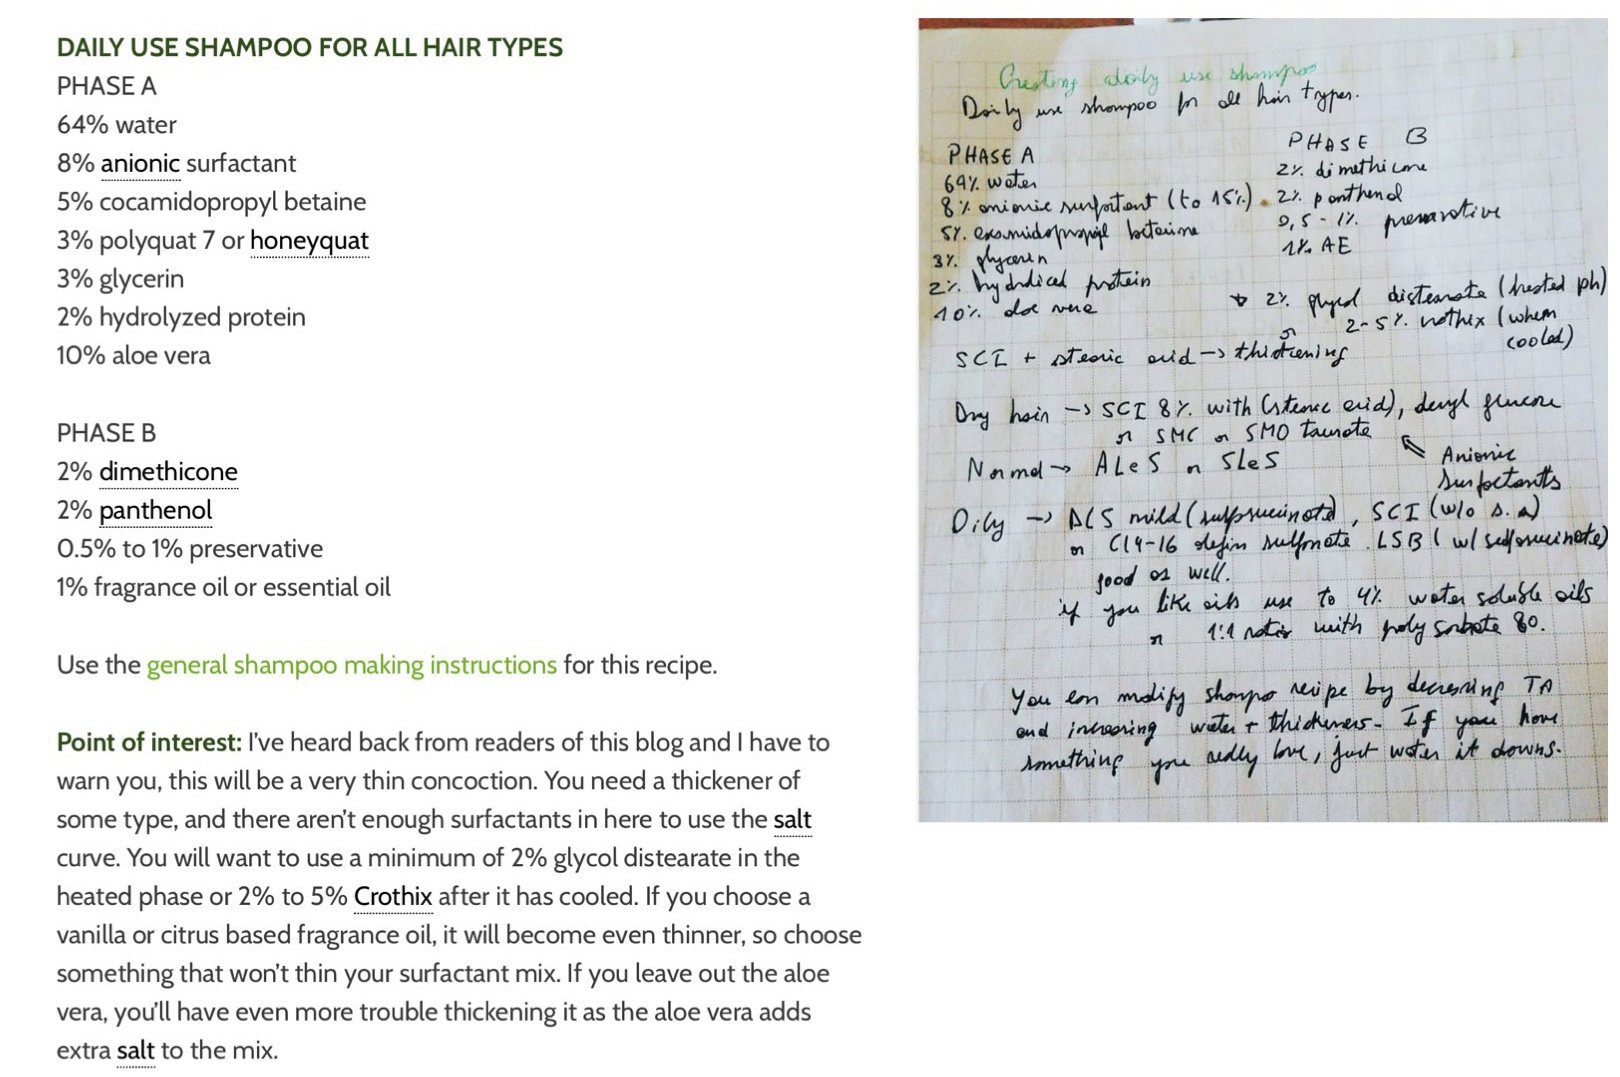 DAILY USE SHAMPOO FOR ALL HAIR TYPES
PHASE A
64% water
8% anionic surfactant
5% cocamidopropyl betaine
3% polyquat 7 or honeyquat
3% glycerin
2% hydrolyzed protein
10% aloe vera
PHASE B
2% dimethicone
2% panthenol
0.5% to 1% preservative
1% fragrance oil or essential oil
Use the general shampoo making instructions for this recipe.
Point of interest: I've heard back from readers of this blog and I have to
warn you, this will be a very thin concoction. You need a thickener of
some type, and there aren't enough surfactants in here to use the salt
curve. You will want to use a minimum of 2% glycol distearate in the
heated phase or 2% to 5% Crothix after it has cooled. If you choose a
vanilla or citrus based fragrance oil, it will become even thinner, so choose
something that won't thin your surfactant mix. If you leave out the aloe
vera, you'll have even more trouble thickening it as the aloe vera adds
extra salt to the mix.
Creating daily use shampoo
Daily use shampoo for all hair types.
PHASE A
64% water
8% anionic surfactant (to 15%)
5% betaine
3% glycerin
2% protein
10% aloe vera
PHASE B
2% dimethicone
2% panthenol
0,5 - 1% preservative
1% AE
→ 2% glycol distearate (heated ph)
or 2-5% (when
cooled)
SCI + stearic acid → thickening
Dry hair → SCI 8% with (stearic acid), decyl
or SMC or SMO taurate
Anionic
Surfactants
Normal → ALeS or SLeS
Oily → mild (sulfosuccinate), SCI (w/o s.a)
or C14-16 olefin sulfonate. LSB (w/ sulfosuccinate)
good as well.
if you like oils use to 4% water soluble oils
or 1:1 ratio with polysorbate 80.
You can modify shampo recipe by decreasing
and increasing water + thickeners. If you have
something you really love, just water it downs.